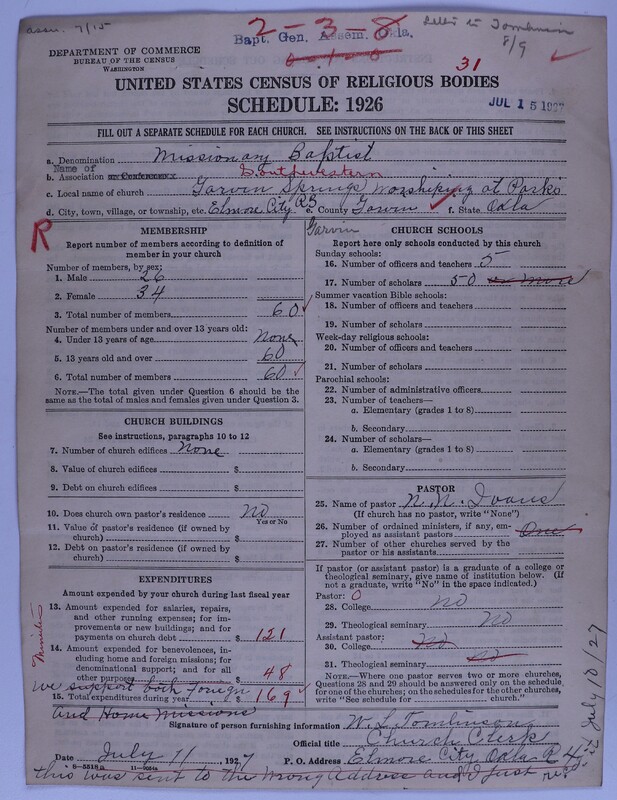 assn. 7/15
2-3-8
Letter to Tomlinson
8/9
Bapt. Gen. Assem. Okla.
0-1-0
DEPARTMENT OF COMMERCE
BUREAU OF THE CENSUS
WASHINGTON
31
UNITED STATES CENSUS OF RELIGIOUS BODIES
SCHEDULE: 1926
JUL 15 1927
FILL OUT A SEPARATE SCHEDULE FOR EACH CHURCH. SEE INSTRUCTIONS ON THE BACK OF THIS SHEET
a. Denomination Missionary Baptist
Name of
b. Association or Conference Southwestern
c. Local name of church Garvin Springs Worshiping at Parks
d. City, town, village, or township, etc. Elmore City R5 e. County Garvin f. State Okla
Garvin
R
MEMBERSHIP
Report number of members according to definition of member in your church
Number of members, by sex:
1. Male 26
2. Female 34
3. Total number of members 60
Number of members under and over 13 years old:
4. Under 13 years of age None
5. 13 years old and over 60
6. Total number of members 60
NOTE.—The total given under Question 6 should be the same as the total of males and females given under Question 3.
CHURCH BUILDINGS
See instructions, paragraphs 10 to 12
7. Number of church edifices None
8. Value of church edifices $
9. Debt on church edifices $
10. Does church own pastor's residence No
Yes or No
11. Value of pastor's residence (if owned by church) $
12. Debt on pastor's residence (if owned by church) $
EXPENDITURES
Amount expended by your church during last fiscal year
13. Amount expended for salaries, repairs, and other running expenses; for improvements or new buildings; and for payments on church debt $ 121
14. Amount expended for benevolences, including home and foreign missions; for denominational support; and for all other purposes $ 48
we support both foreign
15. Total expenditures during year $ 169
and Home Missions
CHURCH SCHOOLS
Report here only schools conducted by this church
Sunday schools:
16. Number of officers and teachers 5
17. Number of scholars 50 or more
Summer vacation Bible schools:
18. Number of officers and teachers
19. Number of scholars
Week-day religious schools:
20. Number of officers and teachers
21. Number of scholars
Parochial schools:
22. Number of administrative officers
23. Number of teachers—
a. Elementary (grades 1 to 8)
b. Secondary
24. Number of scholars—
a. Elementary (grades 1 to 8)
b. Secondary
PASTOR
25. Name of pastor N. N. Ivans
(If church has no pastor, write "None")
26. Number of ordained ministers, if any, employed as assistant pastors One
27. Number of other churches served by the pastor or his assistants
If pastor (or assistant pastor) is a graduate of a college or theological seminary, give name of institution below. (If not a graduate, write "No" in the space indicated.)
Pastor: 0
28. College no
29. Theological seminary no
Assistant pastor:
30. College no
31. Theological seminary no
NOTE.—Where one pastor serves two or more churches, Questions 28 and 29 should be answered only on the schedule for one of the churches; on the schedules for the other churches, write "See schedule for church."
Signature of person furnishing information W. L. Tomlinson
Official title Church Clerk
Date July 11, 1927 P. O. Address Elmore City Okla R 4
8-5518a
this was sent to the wrong Address and I just rec
it July 10/27